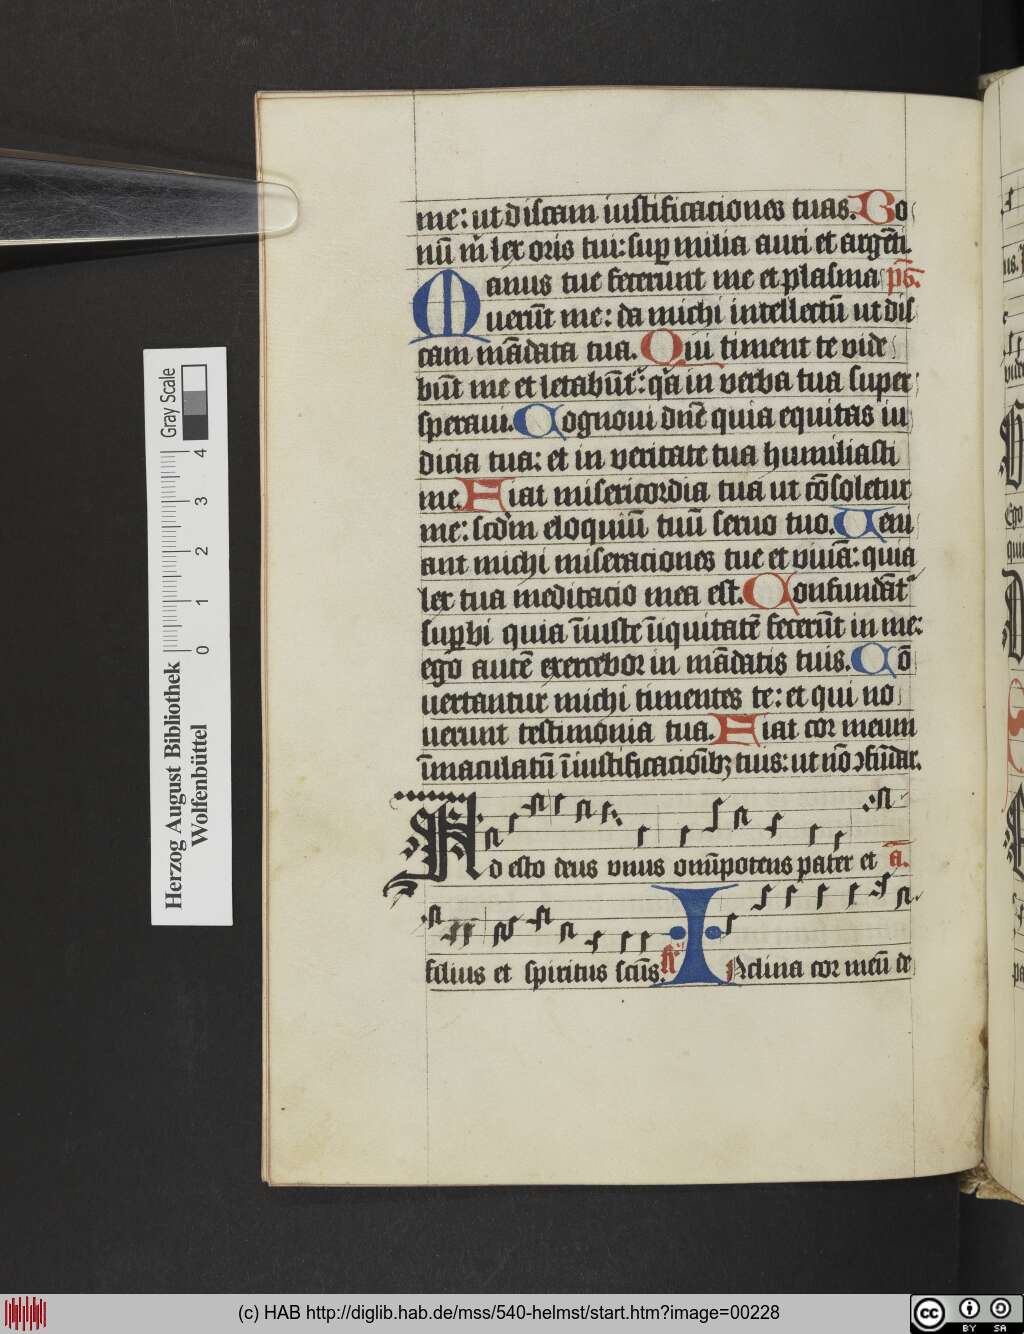 me: ut discam iustificaciones tuas. Bo
nū m̄ lex oris tui: sup milia auri et argēti.
Manus tue fecerunt me et plasma ps.
uerūt me: da michi intellectū ut dis
cam mādata tua. Qui timent te vide
būt me et letabūt᷑: qa in verba tua super
speraui. Cognoui dn̄e quia equitas iu
dicia tua: et in veritate tua humiliasti
me. Fiat misericordia tua ut cōsoletur
me: scdm eloquiū tuū seruo tuo. Ueni
ant michi miseraciones tue et viuā: quia
lex tua meditacio mea est. Confundāt᷑
supbi quia īiuste īiquitatē fecerūt in me:
ego autē exercebor in mādatis tuis. Cō
uertantur michi timentes te: et qui no
uerunt testimonia tua. Fiat cor meum
īmaculatū ī iustificacioībꝫ tuis: ut nō ↄfūdar.
Ad esto deus vnus omīpotens pater et a.
filius et spiritus scūs. Inclina cor meū de
Gray Scale
0 1 2 3 4
Herzog August Bibliothek
Wolfenbüttel
(c) HAB http://diglib.hab.de/mss/540-helmst/start.htm?image=00228
cc BY SA